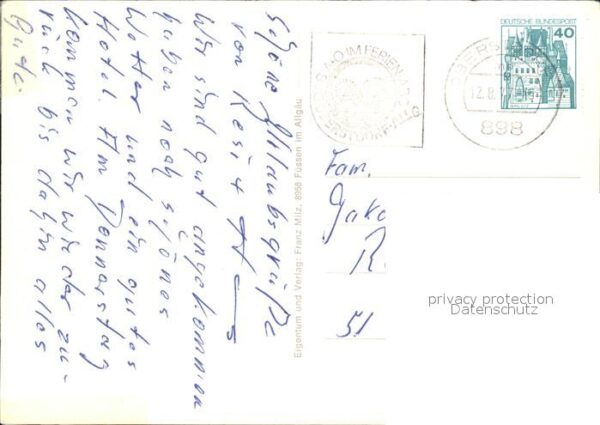 Schöne Urlaubsgrüße
von Resi +
Wir sind gut angekommen
haben noch schönes
Wetter und ein gutes
Hotel. Am Donnerstag
kommen wir wieder zu-
rück bis dahin alles
Gute.
Eigentum und Verlag: Franz Milz, 8958 Füssen im Allgäu
DEUTSCHE BUNDESPOST
40
12.8.
898
Fam.
Jako
R.
51
privacy protection
Datenschutz